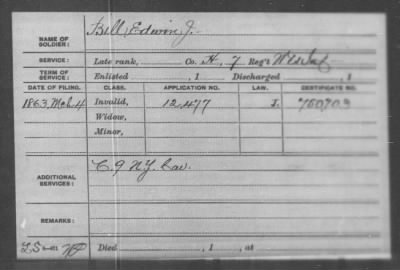 NAME OF SOLDIER: Bell, Edwin J.
SERVICE: Late rank, Co. H, 7 Reg't U.S. Inf
TERM OF SERVICE: Enlisted , 1 Discharged , 1
DATE OF FILING. CLASS. APPLICATION NO. LAW. CERTIFICATE NO.
1863, Mch. 4 Invalid, 12,477 I. 750703
Widow,
Minor,
ADDITIONAL SERVICES: C. 9 N.Y. Cav.
REMARKS:
Died , 1 , at